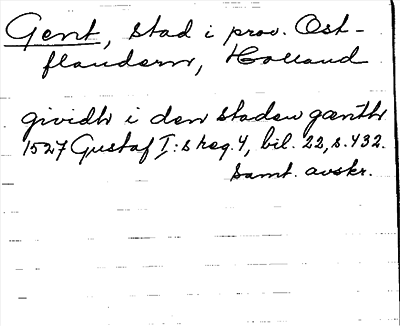 Gent, stad i prov. Ost-
flandern, Holland
gividh i den staden gænth
1527 Gustaf I:s reg. 4, bil. 22, s. 432.
Samt. avskr.